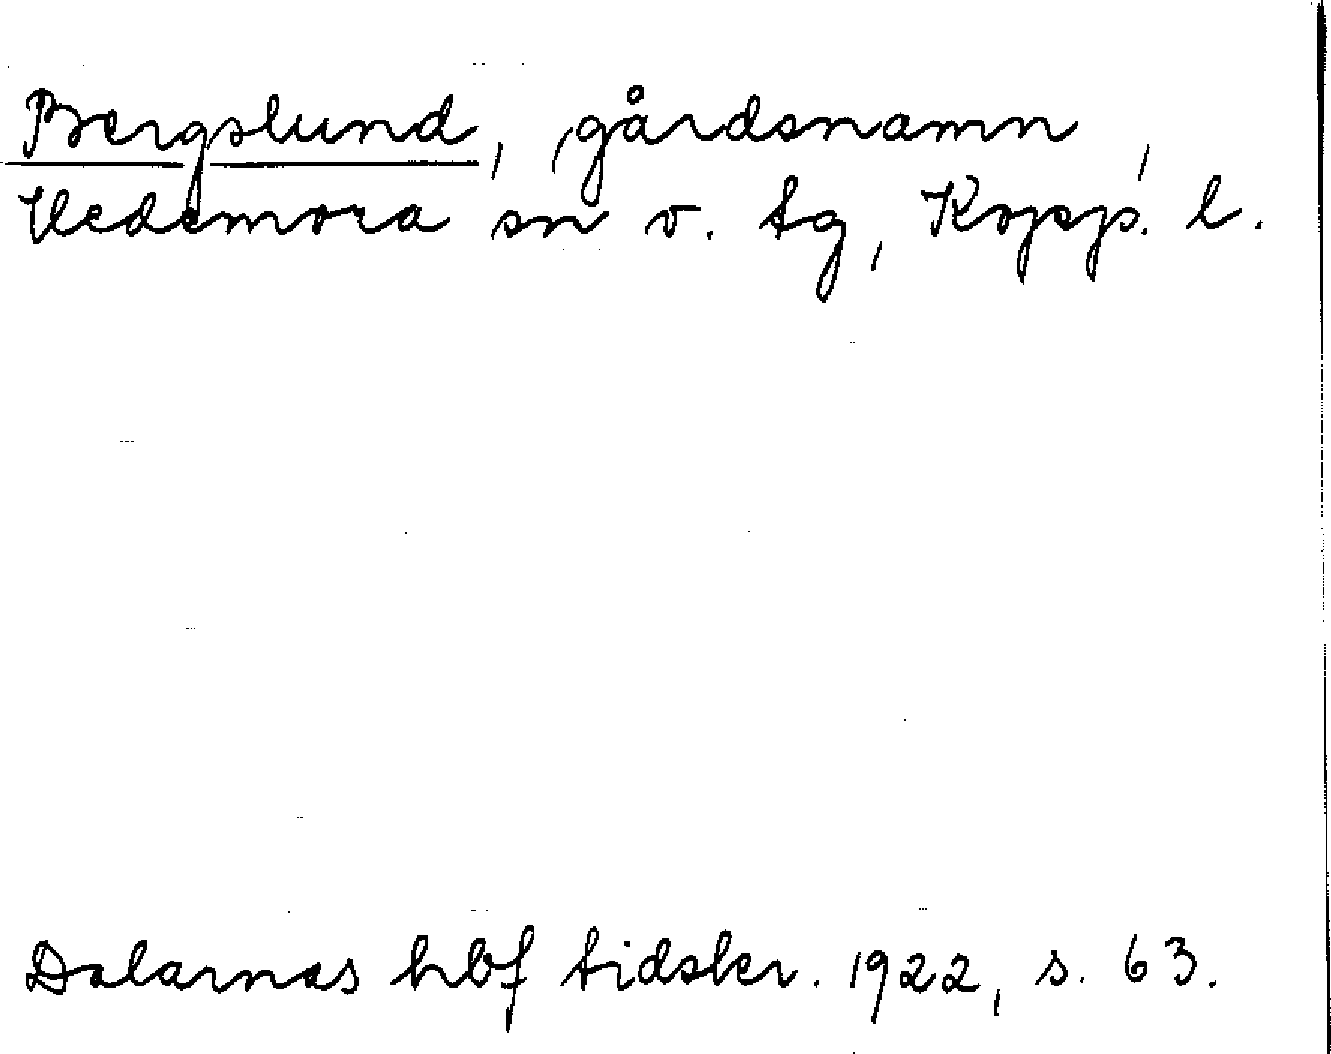 Bergslund, gårdsnamn,
Hedemora sn v. tg, Kopp. l.
Dalarnas hbf tidskr. 1922, s. 63.